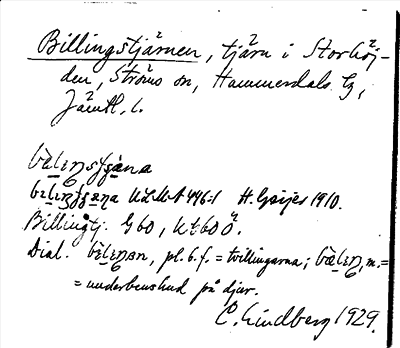 Billingstjärnen, tjärn i Storhöj-
den, Ströms sn, Hammerdals tg,
Jämtl. l.
bìlıŋsʃǥæ̀na
bɪlɪŋʃʃæna ULMA 446:1 H. Geijer 1910.
Billingtj. G 60, Kt 60 Ö.
Dial. bìlıŋan, pl. b.f. = tvillingarna; bæ̀lıŋ, m. =
= underbenshud på djur.
C. Lindberg 1929.